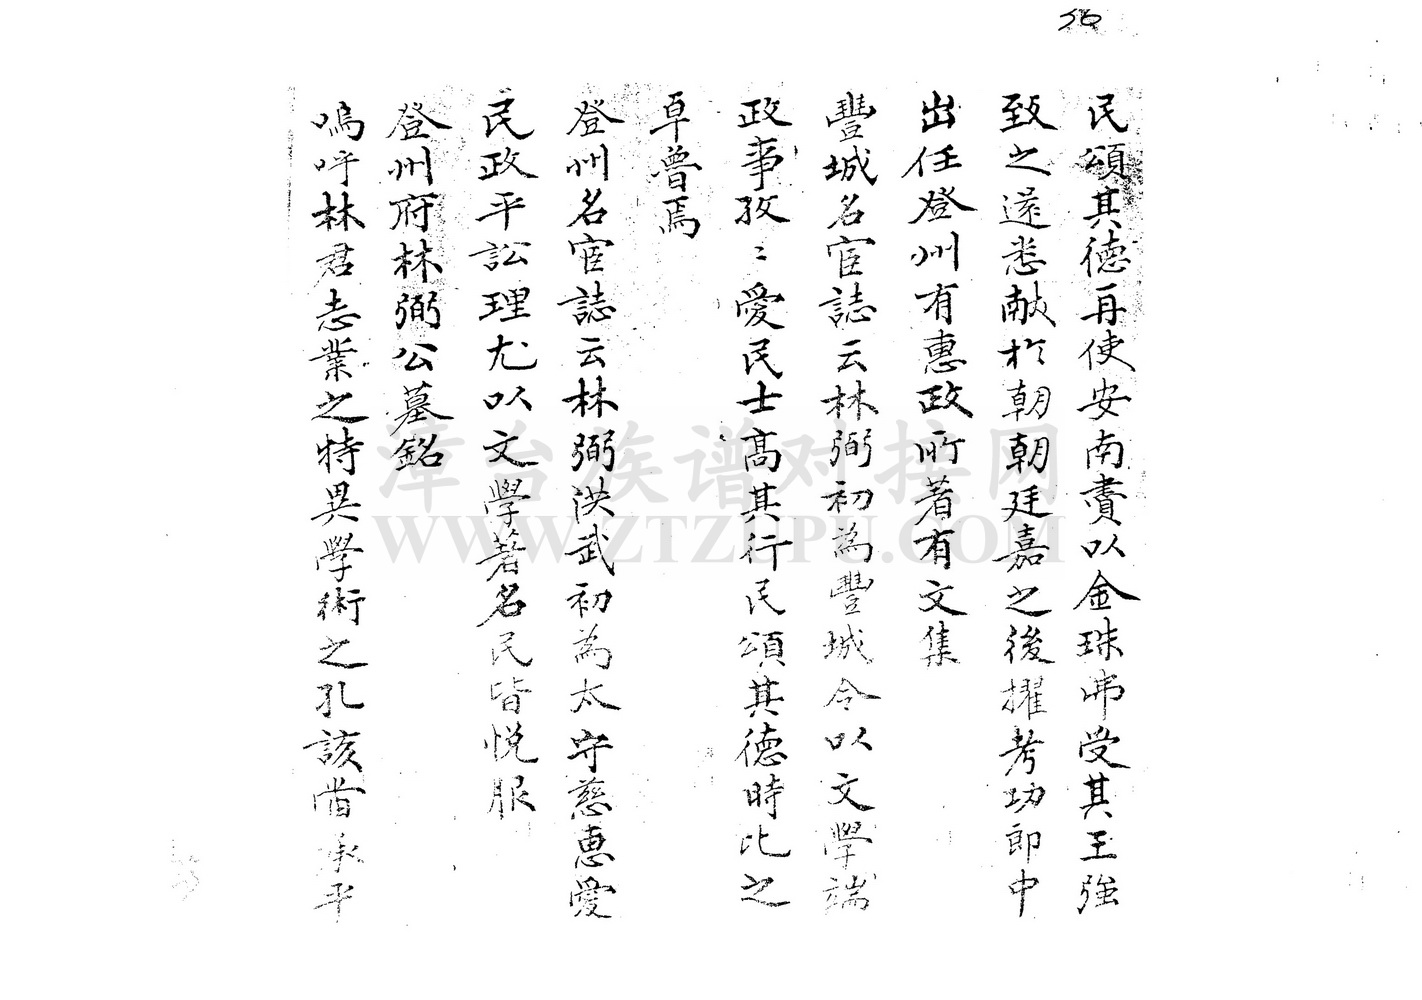 民頌其德再使安南賷以金珠弗受其王強
致之還悉献於朝朝廷嘉之後擢考功郎中
出任登州有惠政所著有文集
豐城名宦誌云林弼初為豐城令以文學端
政事孜〻愛民士高其行民頌其德時比之
卓曾焉
登州名宦誌云林弼洪武初為太守慈惠愛
民政平訟理尤以文學著名民皆悅服
登州府林弼公墓銘
嗚呼林君志業之特異學術之孔該當承平
漳台族谱对接网
WWW.ZTZUPU.COM